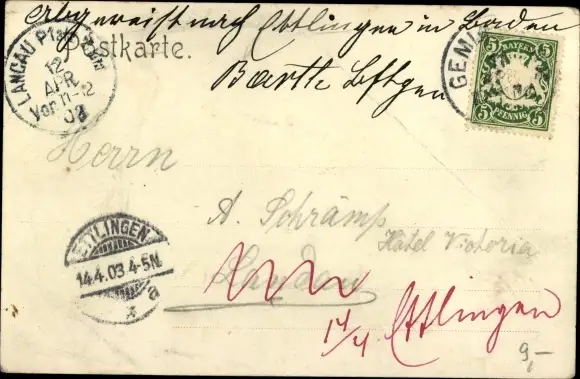 abgereist nach Ettlingen in Baden
Postkarte.
LANDAU Pfalz
12
APR
Vor. 11-12
03
GEMI
5 BAYERN 5
5 PFENNIG 5
Herrn
A. Schrämp
Hotel Victoria
Landau
ETTLINGEN
14.4.03.4-5N.
* a
14/4 Ettlingen
9,-